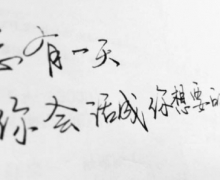 总有一天
你会活成你想要的